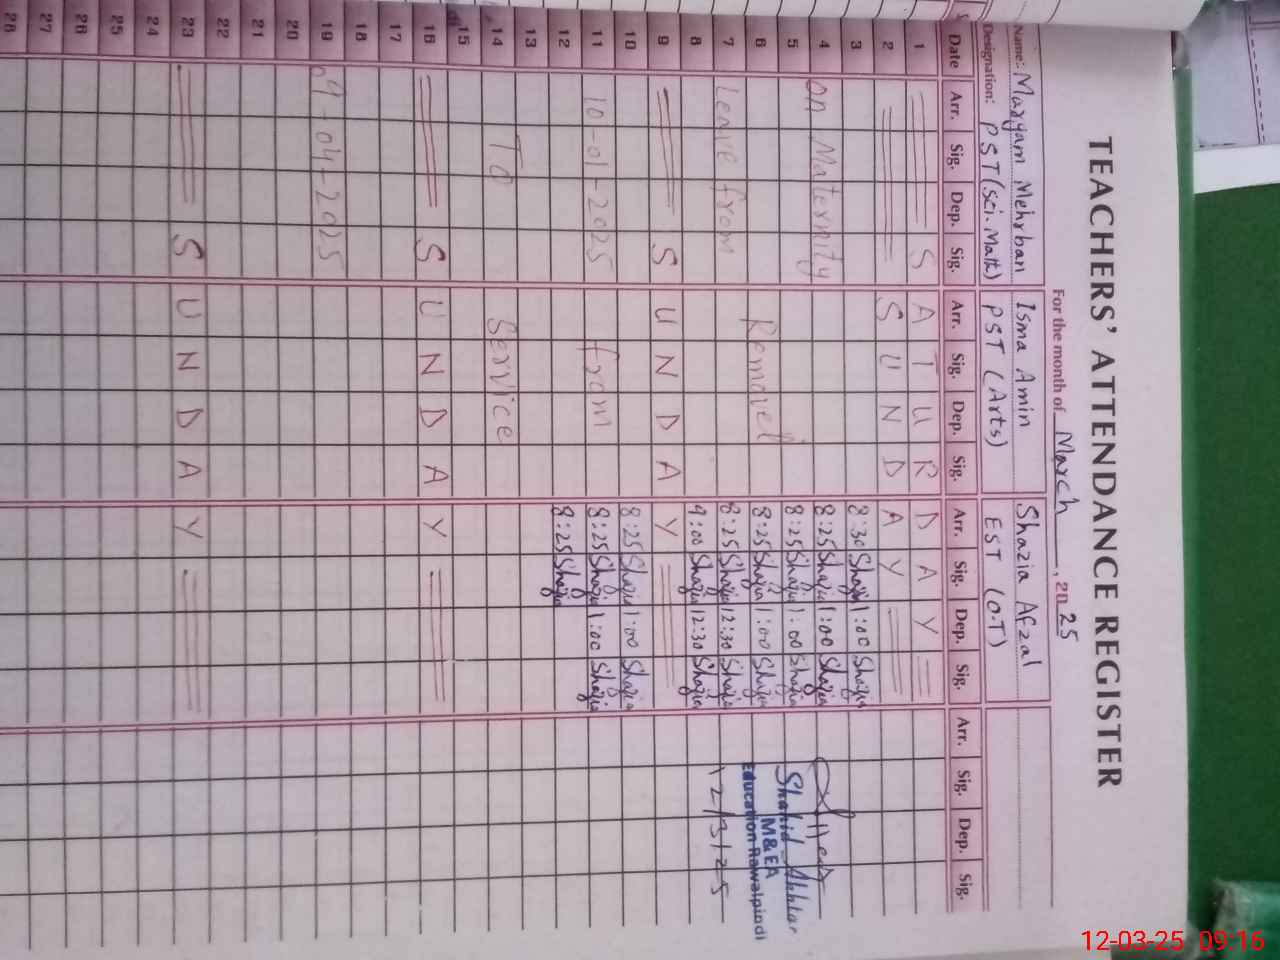 TEACHERS' ATTENDANCE REGISTER
For the month of March, 2025
Name:- Maryam Mehrban Isma Amin Shazia Afzal
Designation: PST (Sci. Math) PST (Arts) EST (O.T)
Date Arr. Sig. Dep. Sig. Arr. Sig. Dep. Sig. Arr. Sig. Dep. Sig. Arr. Sig. Dep. Sig.
1 S A T U R D A Y
2 S U N D A Y
3 8:30 Shazia 1:00 Shazia
4 On Maternity 8:25 Shazia 1:00 Shazia
5 8:25 Shazia 1:00 Shazia Shahid Akhtar
6 Removel 8:25 Shazia 1:00 Shazia M&EA
Education Rawalpindi
7 Leave from 8:25 Shazia 12:30 Shazia 12/3/25
8 9:00 Shazia 12:30 Shazia
9 S U N D A Y
10 8:25 Shazia 1:00 Shazia
11 10-01-2025 from 8:25 Shazia 1:00 Shazia
12 8:25 Shazia
13
14 TO Service
15
16 S U N D A Y
17
18
19 09-04-2025
20
21
22
23 S U N D A Y
24
25
26
27
28
12-03-25 09:16